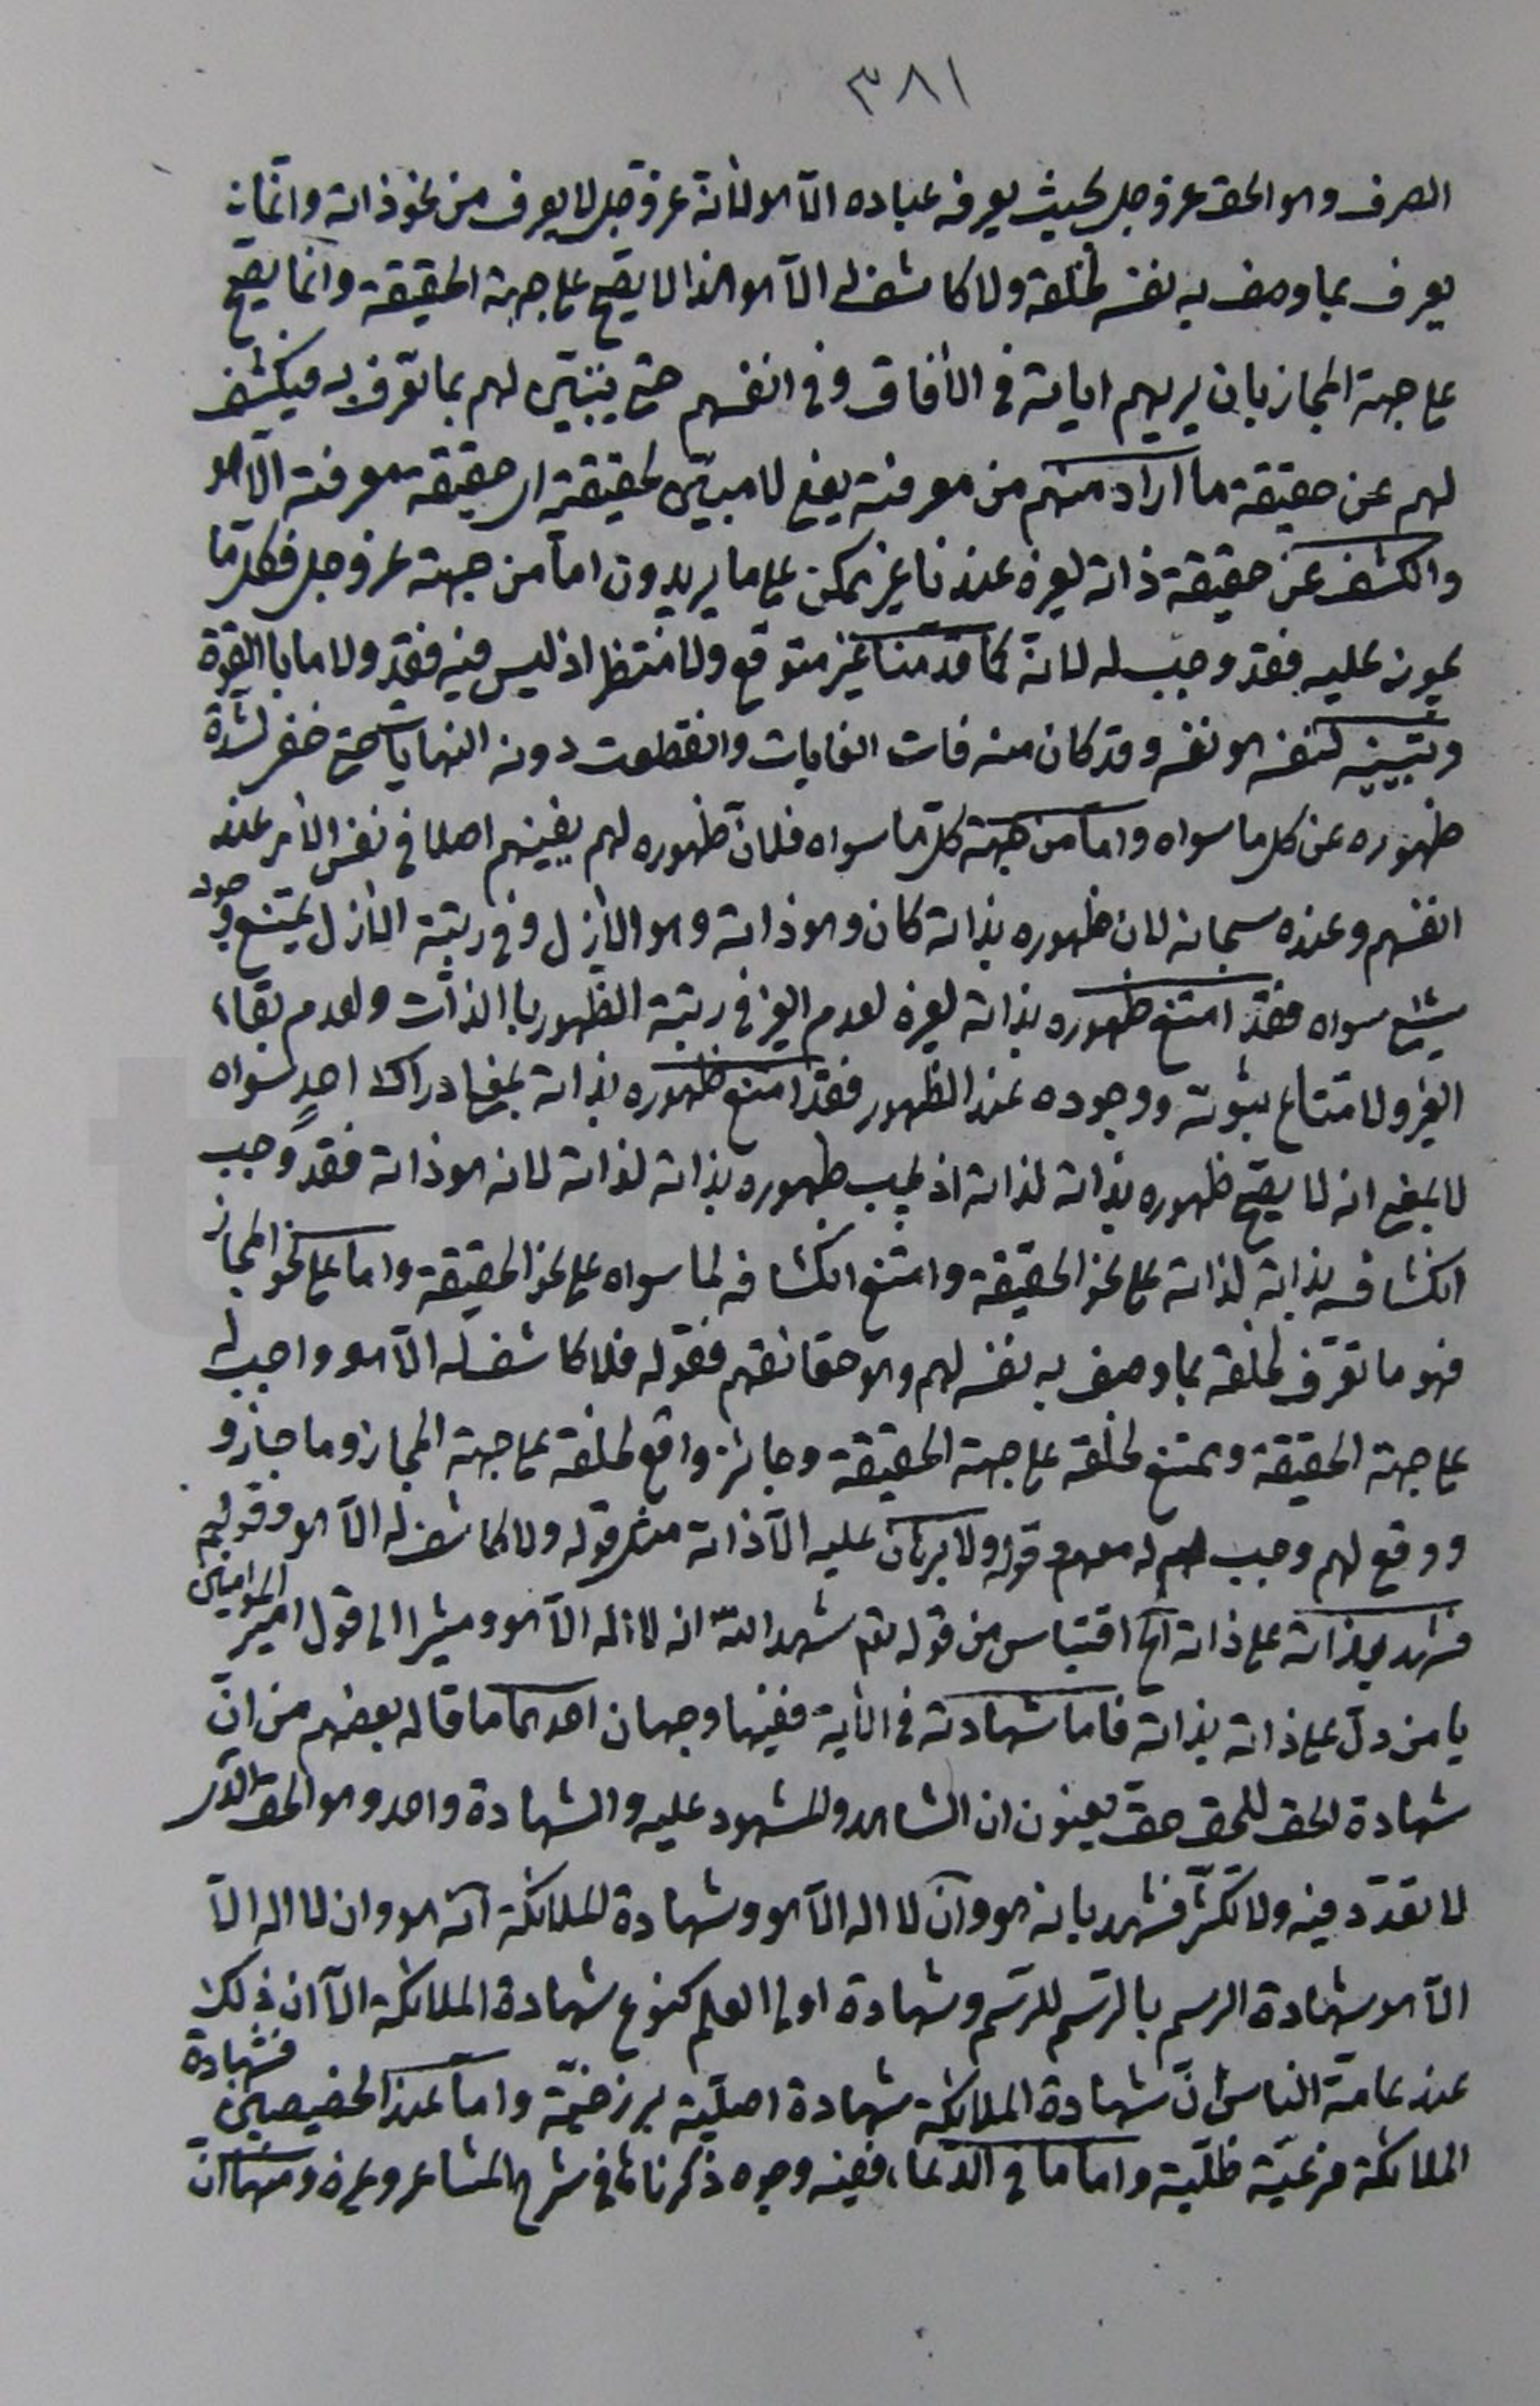 ٣٨١
الصرف وهو الحق عز وجل بحيث يعرفه عباده الّا هو لأنه عز وجل لا يعرف من نحو ذاته وانّما
يعرف بما وصف به نفسه لخلقه ولا كاشف له الّا هو هذا لا يصح على جهة الحقيقة وانّما يصح
على جهة المجاز بان يريهم اياته في الأفاق وفي انفسهم حتى يتبيّن لهم بما تعرّف به فيكشف
لهم عن حقيقة ما اراد منهم من معرفته يعني لا مبيّن لحقيقته اى حقيقة معرفته الّا هو
والكشف عن حقيقة ذاته لغيره عندنا غير ممكن على ما يريدون امّا من جهته عز وجل فكل ما
يجوز عليه فقد وجب له لانّه كما قدّمنا غير متوقع ولا منتظر اذ ليس فيه فقد ولا ما باالقوة
وتبيينه لنفسه هو نفسه وقد كان منه فات الغايات وانقطعت دونه النهايات حتى خفى لشدّة
ظهوره عن كل ما سواه وامّا من جهة كلّ ما سواه فلانّ ظهوره لهم يفنيهم اصلا في نفس الأمر عند
انفسهم وعنده سبحانه لان ظهوره بذاته كان وهو ذاته وهو الأزل وفي رتبة الأزل يمتنع وجود
شيء سواه فقد امتنع ظهوره بذاته لغيره لعدم الغير في رتبة الظهور باالذات ولعدم بقاء
الغير ولامتناع ثبوته ووجوده عند الظهور فقد امتنع ظهوره بذاته بمعنى ادراك احدٍ سواه
لا بمعنى انه لا يصح ظهوره بذاته لذاته اذ يجب ظهوره بذاته لذاته لانه هو ذاته فقد وجب
انكشافه بذاته لذاته على نحو الحقيقة وامتنع انكشافه لما سواه على نحو الحقيقة وامّا على نحو المجاز
فهو ما تعرّف لخلقه بما وصف به نفسه لهم وهو حقائقهم فقوله فلا كاشف له الّا هو واجب له
على جهة الحقيقة وممتنع لخلقه على جهة الحقيقة وجائز واقع لخلقه على جهة المجاز وما جاز و
ووقع لهم وجب له معهم وقوله ولا برهان عليه الّا ذاته مثل قوله ولا كاشف له الّا هو وقوله
فشهد بذاته على ذاته الخ اقتباس من قوله تعم شهد اللّه انه لا اله الّا هو ومشيرا الى قول امير المؤمنين
يا من دلّ على ذاته بذاته فامّا شهادته في الأية ففيها وجهان احدهما ما قاله بعضهم من انّ
شهادة الحق للحق حق يعنون ان الشاهد والمشهود عليه والشهادة واحد وهو الحق الّذى
لا تعدّد فيه ولا تكثّر فشهد بانه هو وآن لا اله الّا هو وشهادة الملائكة انّه هو وان لا اله الّا
الّا هو شهادة الرسم بالرّسم للرّسم وشهادة اولى العلم كنوع شهادة الملائكة الّا ان ذلك
عند عامّة الناس انّ شهادة الملائكة شهادة اصليّة برزخيّة وامّا عند الخصيصين فشهادة
الملائكة فرعيّة ظلّية وامّا ما في الدّعاء ففيه وجوه ذكرناها في شرح المشاعر وغيره ومنها انّ